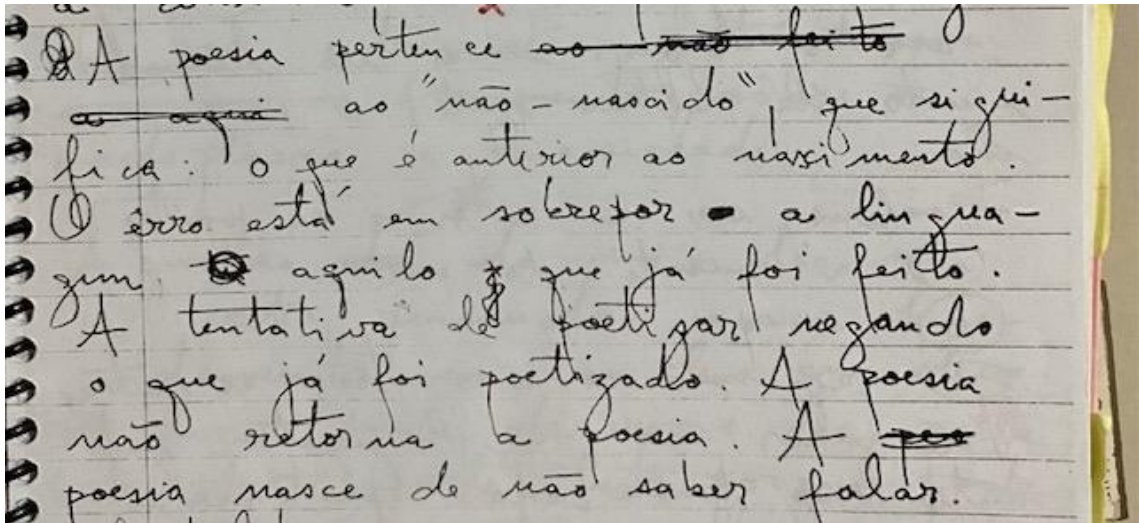 A poesia pertence ao não feito
ao "não-nascido", que signi-
fica: o que é anterior ao nascimento.
O êrro está em sobrepor a lingua-
gem aquilo que já foi feito.
A tentativa de poetizar negando
o que já foi poetizado. A poesia
não retorna a poesia. A
poesia nasce de não saber falar.